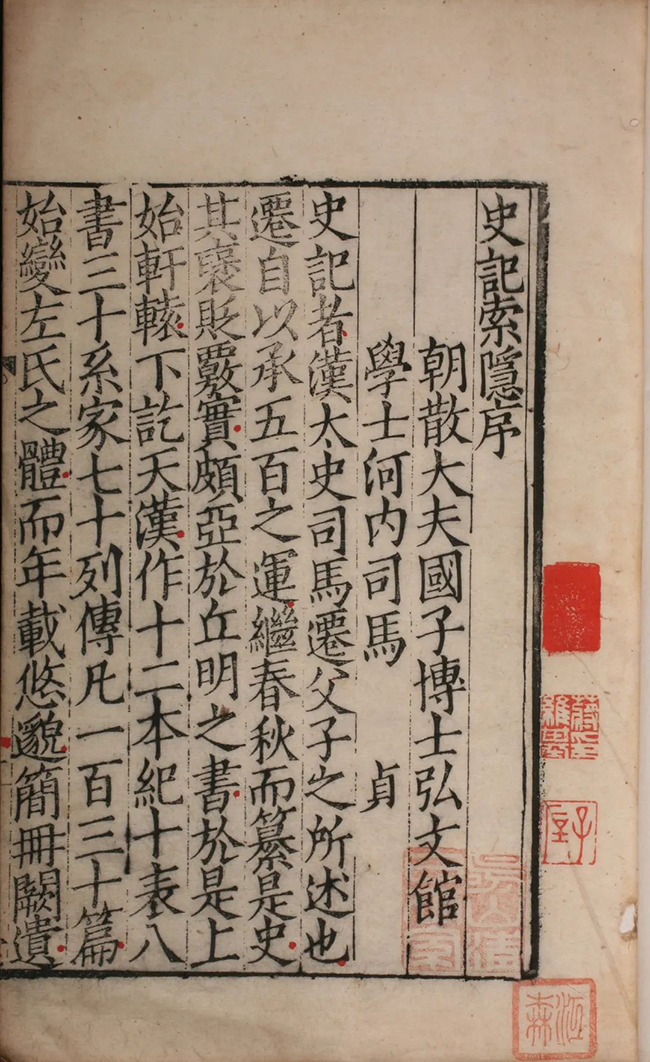 史記索隱序
朝散大夫國子博士弘文館
學士河内司馬　貞
史記者漢太史司馬遷父子之所述也
遷自以承五百之運繼春秋而纂是史
其襃貶覈實頗亞於丘明之書於是上
始軒轅下訖天漢作十二本紀十表八
書三十系家七十列傳凡一百三十篇
始變左氏之體而年載悠邈簡冊闕遺